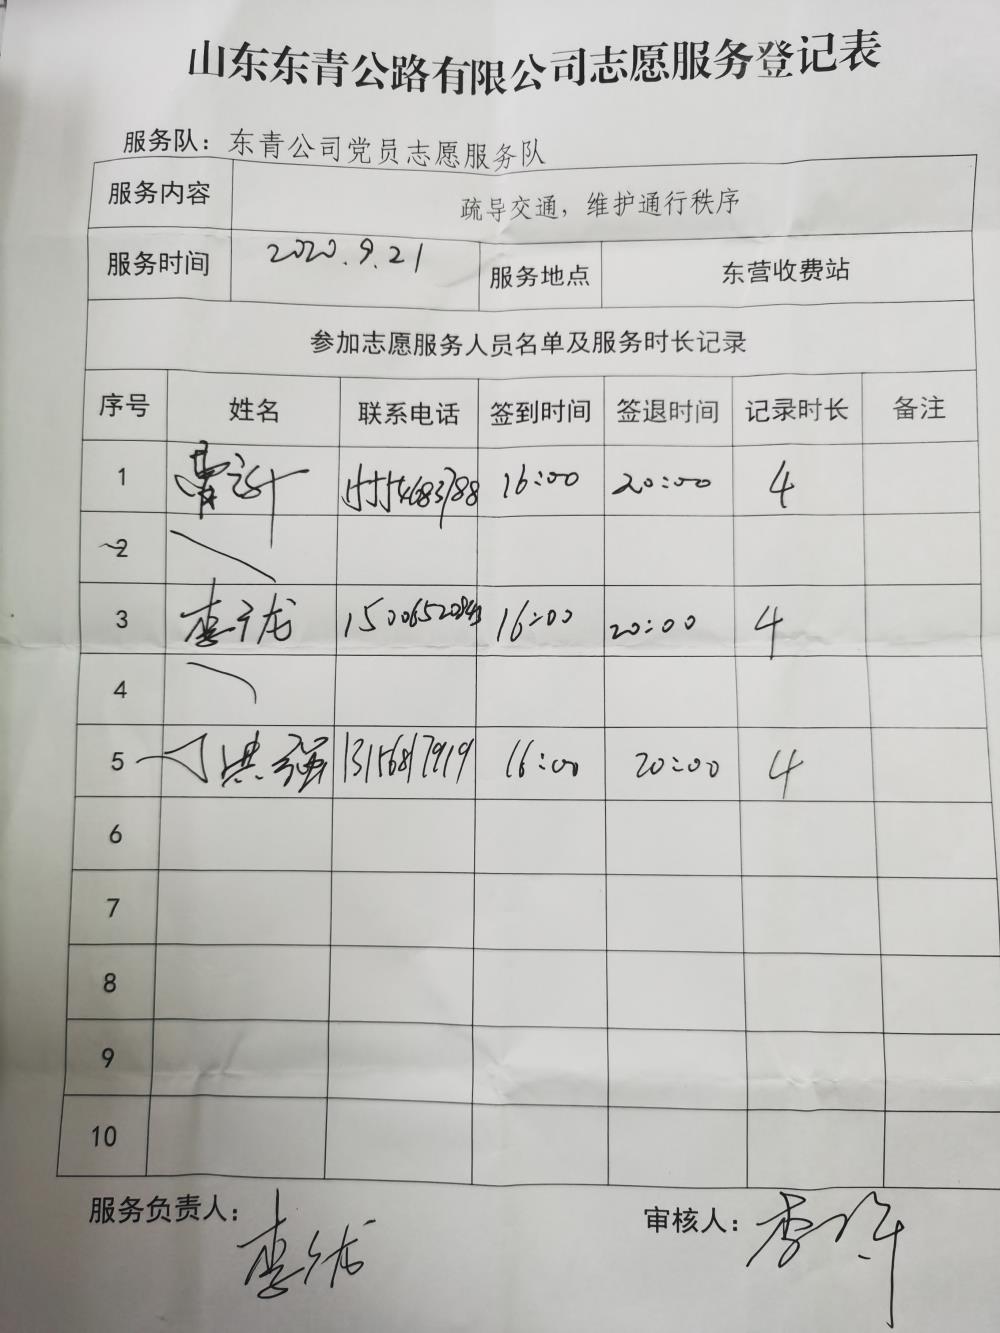 山东东青公路有限公司志愿服务登记表
服务队：东青公司党员志愿服务队
服务内容 疏导交通，维护通行秩序
服务时间 2020.9.21 服务地点 东营收费站
参加志愿服务人员名单及服务时长记录
序号 姓名 联系电话 签到时间 签退时间 记录时长 备注
1 曹 16:00 20:00 4
2
3 李 龙 15006520843 16:00 20:00 4
4
5 丁洪强 13156817919 16:00 20:00 4
6
7
8
9
10
服务负责人：李 龙 审核人：李